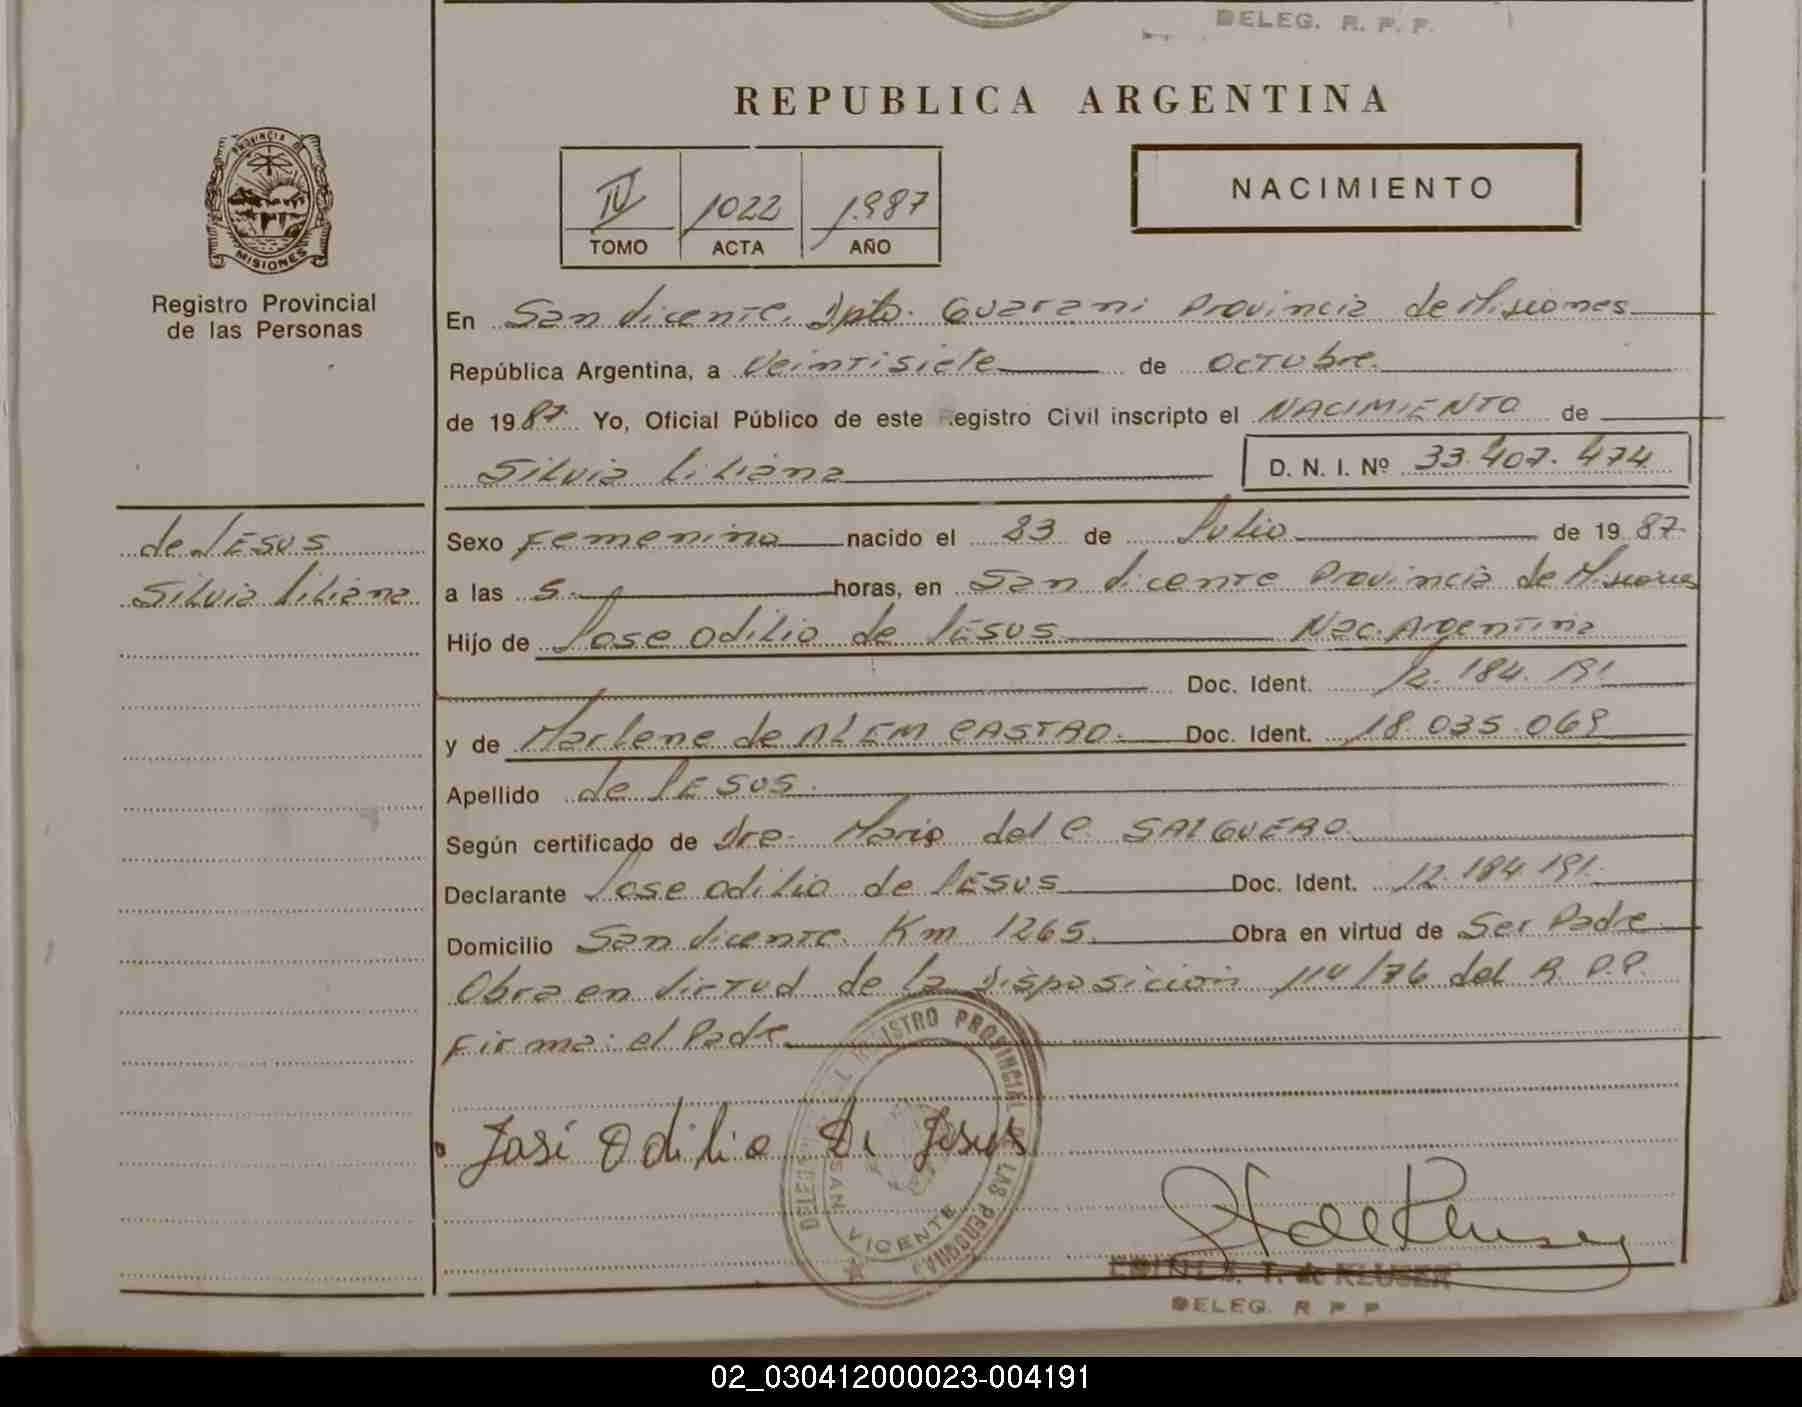 DELEG. R. P. P.
REPUBLICA ARGENTINA
PROVINCIA DE
MISIONES
Registro Provincial
de las Personas
IV 1022 1987
TOMO ACTA AÑO
NACIMIENTO
En San Vicente. Dpto. Guarani Provincia de Misiones
República Argentina, a Veintisiete de Octubre.
de 1987. Yo, Oficial Público de este Registro Civil inscripto el NACIMIENTO de
Silvia Liliana D. N. I. Nº 33.407.474
de JESUS
Silvia Liliana
Sexo Femenino nacido el 03 de Julio de 1987.
a las 5. horas, en San Vicente Provincia de Misiones
Hijo de Jose Odilio de JESUS Nac. Argentina
Doc. Ident. 12.184.191
y de Marlene de ALEM CASTRO. Doc. Ident. 18.035.069
Apellido de JESUS.
Según certificado de Dra. Maria del C. SALGUERO
Declarante Jose Odilio de JESUS Doc. Ident. 12.184.191.
Domicilio San Vicente. Km 1265. Obra en virtud de Ser Padre
Obra en Virtud de la Disposición 114/76 del R.P.P.
Firma: el Padre
José Odilio De Jesus
REGISTRO PROVINCIAL DE LAS PERSONAS
SAN VICENTE
S. T. de KLUSER
DELEG. R P P
02_030412000023-004191